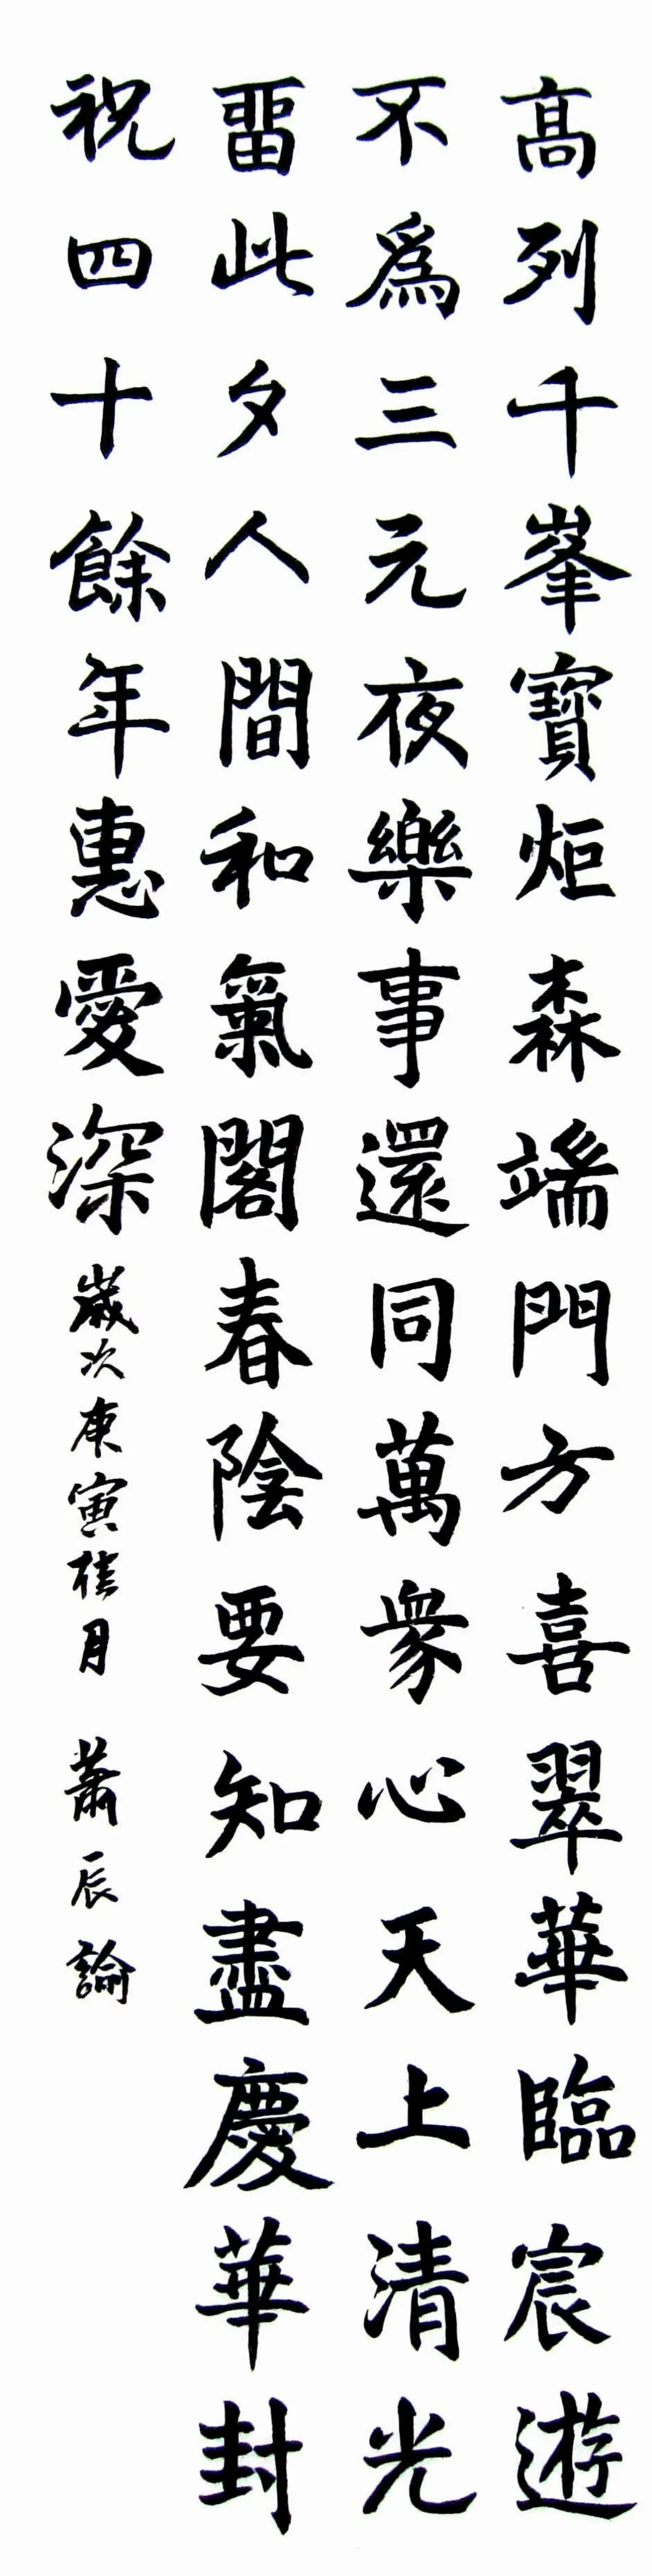 高列千峯寶炬森端門方喜翠華臨宸遊
不為三元夜樂事還同萬衆心天上清光
畱此夕人間和氣閣春陰要知盡慶華封
祝四十餘年惠愛深歲次庚寅桂月 蕭辰論